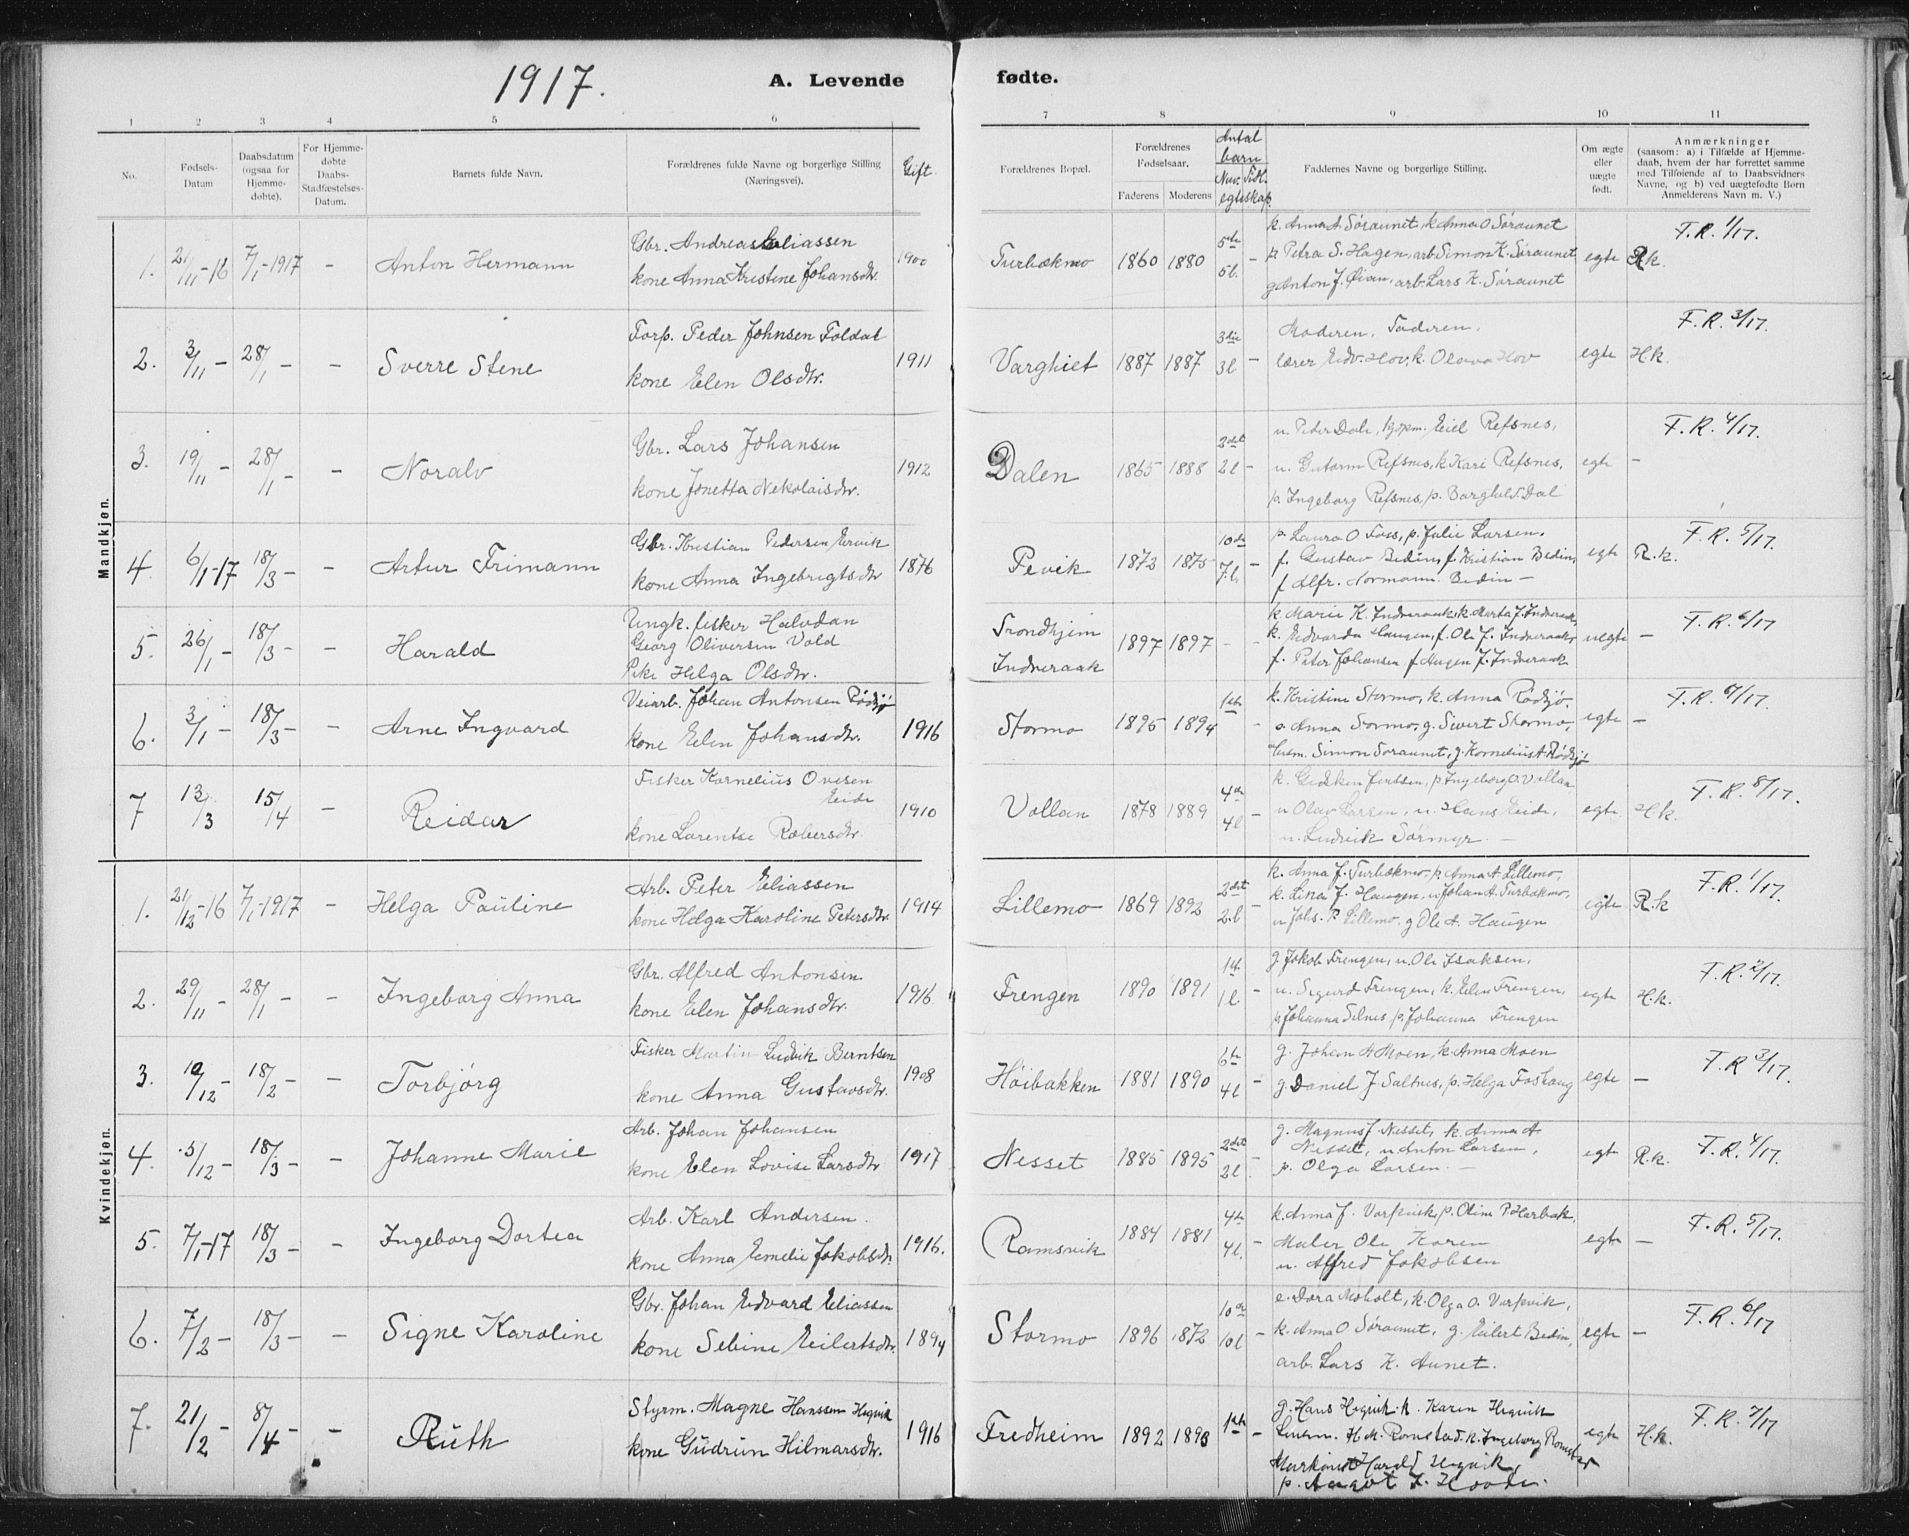 1917.
A. Levende fødte.
1 2 3 4 5 6 7 8 9 10 11
No.
Fødsels-Datum
Daabsdatum (ogsaa for Hjemmedøbte).
For Hjemmedøbte Daabs-Stadfæstelses-Datum.
Barnets fulde Navn.
Forældrenes fulde Navne og borgerlige Stilling (Næringsvei).
Gift.
Forældrenes Bopæl.
Forældrenes Fødselsaar.
Faderens Moderens
Antal barn
Nuv. Tidl.
egteskap.
Faddernes Navne og borgerlige Stilling.
Om ægte eller uægte født.
Anmærkninger
(saasom: a) i Tilfælde af Hjemmedaab, hvem der har forrettet samme med Tilføiende af to Daabsvidners Navne, og b) ved uægtefødte Born Anmelderens Navn m. V.)
Mandkjøn.
1. 21/11-16 7/1-1917 - Anton Hermann
Gbr. Andreas Eliassen
kone Anna Kristene Johansdtr.
1900 Turbækmo 1860 1880 5te 5l. -
k. Anna A Søraunet, k Anna O Søraunet
p Petra S. Hagen, arb. Simon K. Søraunet
g Anton J. Øian, arb. Lars K. Søraunet
egte R.k. F.R. 1/17.
2. 3/11 - 28/1 - - Sverre Stene
Torp. Peder Johnsen Foldal
kone Elen Olsdtr.
1911 Varghiet 1887 1887 3die 3l -
Moderen, Faderen,
lærer Edv. Hov, k. Olava Hov
egte H.k. F.R. 3/17.
3. 19/11 - 28/1 - - Noralv
Gbr. Lars Johansen
kone Jonetta Nekolaisdtr.
1912 Dalen 1865 1888 2det 2l -
u. Peder Dale, Eiel Refsnes,
u. Gutorm Refsnes, k Kari Refsnes,
p. Ingeborg Refsnes, p. Borghild Dal
egte - F.R. 4/17.
4. 6/1-17 18/3 - - Artur Frimann
Gbr. Kristian Pedersen Ervik
kone Anna Ingebrigtsdtr
1876 Pevik 1873 1875 10de 7l. -
p. Laura O Foss, p. Julie Larsen,
f. Gustav Bedin, f Kristian Bedin,
f Alfr. Normann Bedin -
egte R.k. F.R. 5/17.
5. 26/1 - 18/3 - - Harald
Ungk. fisker Halvdan
Georg Oliversen Vold
Pike Helga Olsdtr.
Trondhjem
Indneraak
1897 1897 - -
k. Marie K. Indneraak, k. Marta J. Indneraak,
k. Edvarda Haugen, f. Ole J. Indneraak,
f. Peter Johansen f Augen J. Indneraak
uegte - F.R. 6/17
6. 3/1 - 18/3 - - Arne Ingvard
Veiarb. Johan Antonsen Rødsjø
kone Elen Johansdtr.
1916 Stormo 1895 1894 1ste -
k. Kristine Stormo, k Anna Rødsjø,
Anna Stormo, g. Sivert Stormo,
Simon Soraunet, g. Kornelius A. Rødsjø
egte - F.R. 7/17.
7 13/3 15/4 - Reidar
Fisker Kornelius Ovesen
Eide
kone Larentse Robersdtr.
1910 Vollan 1878 1889 4de 4l -
k. Jenssen, p Ingeborg O. Vollan
u Olav Larsen, u. Hans Eide,
u. Ludvik Sørmyr -
egte H.k. F.R. 8/17.
Kvindekjøn.
1. 21/12-16 7/1-1917 - Helga Pauline
Arb. Peter Eliassen
kone Helga Karoline Petersdtr.
1914 Lillemo 1869 1892 2det 2l -
k. Anna J. Turbækmo, p Anna A Lillemo,
k. Lina J. Haugen, u Johan A Turbækmo,
u Johs. P. Lillemo, g Ole A. Haugen
egte R.k F.R. 1/17.
2. 29/11 - 28/1 - - Ingeborg Anna
Gbr. Alfred Antonsen
kone Elen Johansdtr.
1916. Frengen 1890 1891 1st 1l. -
g Jakob Frengen, u. Ole Isaksen,
u. Sigurd Frengen, k. Elen Frengen,
p Johanna Selnes p. Johanna Frengen
egte H.k. F.R. 2/17.
3. 19/12 - 18/2 - - Torbjørg
Fisker Martin Ludvik Berntsen
kone Anna Gustavsdtr.
1908 Høibakken 1881 1890 6te 4l -
g. Johan A Moen, k. Anna Moen
g Daniel J. Saltnes, p. Helga Foshaug
egte - F.R 3/17.
4. 5/12 - 18/3 - - Johanne Marie
Arb. Johan Johansen
kone Elen Lovise Larsdtr
1917 Nesset 1885 1895 2det 2l -
g. Magnus J. Nesset, k. Anna A.
Nesset, u Anton Larsen,
p. Olga Larsen -
egte R.k. F.R. 4/17.
5. 7/1-17 18/3 - - Ingeborg Dortea
Arb. Karl Andersen.
kone Anna Emelie Jakobsdtr.
1916. Ramsvik 1884 1881 4de 4l. -
k. Anna J. Varpvik, p. Oline P. Harbak,
Maler Ole Karen
u. Alfred Jakobsen
egte - F.R. 5/17.
6. 7/2 - 18/3 - - Signe Karoline
Gbr. Johan Edvard Eliassen
kone Sebine Eilertsdtr.
1894 Stormo 1896 1872 10de 10l -
e. Dora Moholt, k. Olga O. Varpvik,
k. Anna O Søraunet, g. Eilert Bedin,
arb. Lars K. Aunet.
egte - F.R. 6/17
7. 21/2 - 8/4 - - Ruth
Styrm. Magne Hanssen Hegvik
kone Gudrun Hilmarsdtr.
1916 Fredheim 1892 1893 1ste -
g. Hans Hegvik k. Karen Hegvik
H.M. Romstad, k. Ingeborg Romstad
Harald Hegvik,
p. Aagot
egte H.k. F.R. 7/17